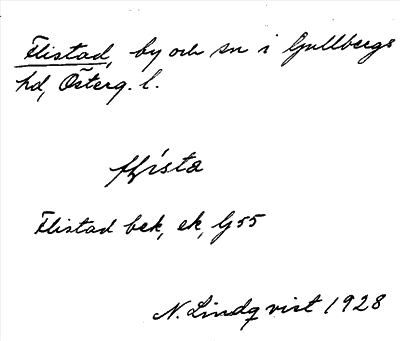 Flistad, by och sn i Gullbergs
hd, Österg. l.
flísta
Flistad bek, ek, G55
N. Lindqvist 1928